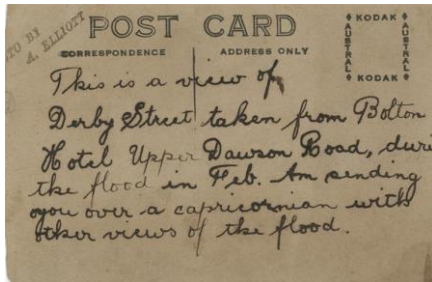 PHOTO BY
A. ELLIOTT
POST CARD
CORRESPONDENCE
ADDRESS ONLY
KODAK
AUSTRAL
AUSTRAL
KODAK
This is a view of
Derby Street taken from Bolton
Hotel Upper Dawson Road, duri
the flood in Feb. Am sending
you over a capricornian with
other views of the flood.